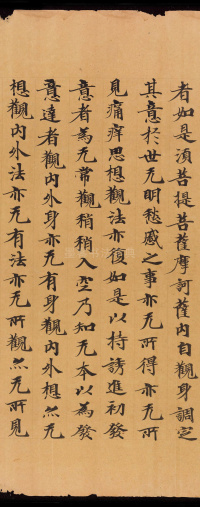 者如是須菩提菩薩摩訶薩內自觀身調定
其意於世无明愁慼之事亦无所得亦无所
見痛痒思想觀法亦復如是以持誘進初發
意者為无常觀稍稍入空乃知无本以為發
意達者觀內外身亦无有身觀內外想亦无
想觀內外法亦无有法亦无所觀亦无所見